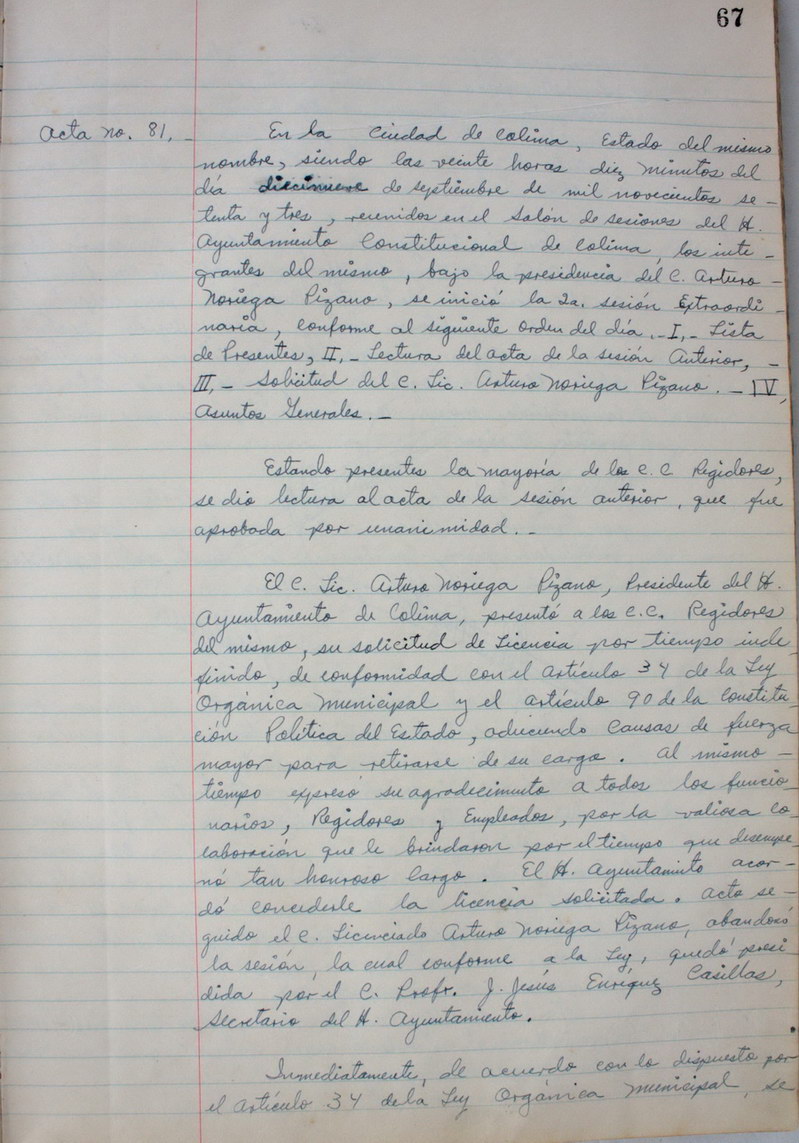 67
Acta no. 81,_ En la ciudad de Colima, Estado del mismo
nombre, siendo las veinte horas diez minutos del
día diecinueve de septiembre de mil novecientos se-
tenta y tres, reunidos en el Salón de sesiones del H.
Ayuntamiento Constitucional de Colima, los inte-
grantes del mismo, bajo la presidencia del C. Arturo-
Noriega Pizano, se inició la 2a. sesión Extraordi-
naria, conforme al siguiente orden del día._ I,_ Lista
de Presentes, II,_ Lectura del acta de la sesión Anterior,-
III,_ Solicitud del C. Lic. Arturo Noriega Pizano._ IV,
Asuntos Generales._
Estando presentes la mayoría de los C.C Regidores,
se dio lectura al acta de la sesión anterior, que fue
aprobada por unanimidad._
El C. Lic. Arturo Noriega Pizano, Presidente del H.
Ayuntamiento de Colima, presentó a los C.C. Regidores
del mismo, su solicitud de Licencia por tiempo inde-
finido, de conformidad con el Artículo 34 de la Ley
Orgánica Municipal y el artículo 90 de la Constitu-
ción Política del Estado, aduciendo causas de fuerza
mayor para retirarse de su cargo. Al mismo-
tiempo expresó su agradecimiento a todos los funcio-
narios, Regidores y Empleados, por la valiosa co-
laboración que le brindaron por el tiempo que desempe-
ñó tan honroso cargo. El H. Ayuntamiento acor-
dó concederle la licencia solicitada. Acto se-
guido el C. Licenciado Arturo Noriega Pizano, abandonó
la sesión, la cual conforme a la Ley, quedó presi-
dida por el C. Profr. J. Jesús Enríquez Casillas,
Secretario del H. Ayuntamiento.
Inmediatamente, de acuerdo con lo dispuesto por
el Artículo 34 de la Ley Orgánica Municipal, se